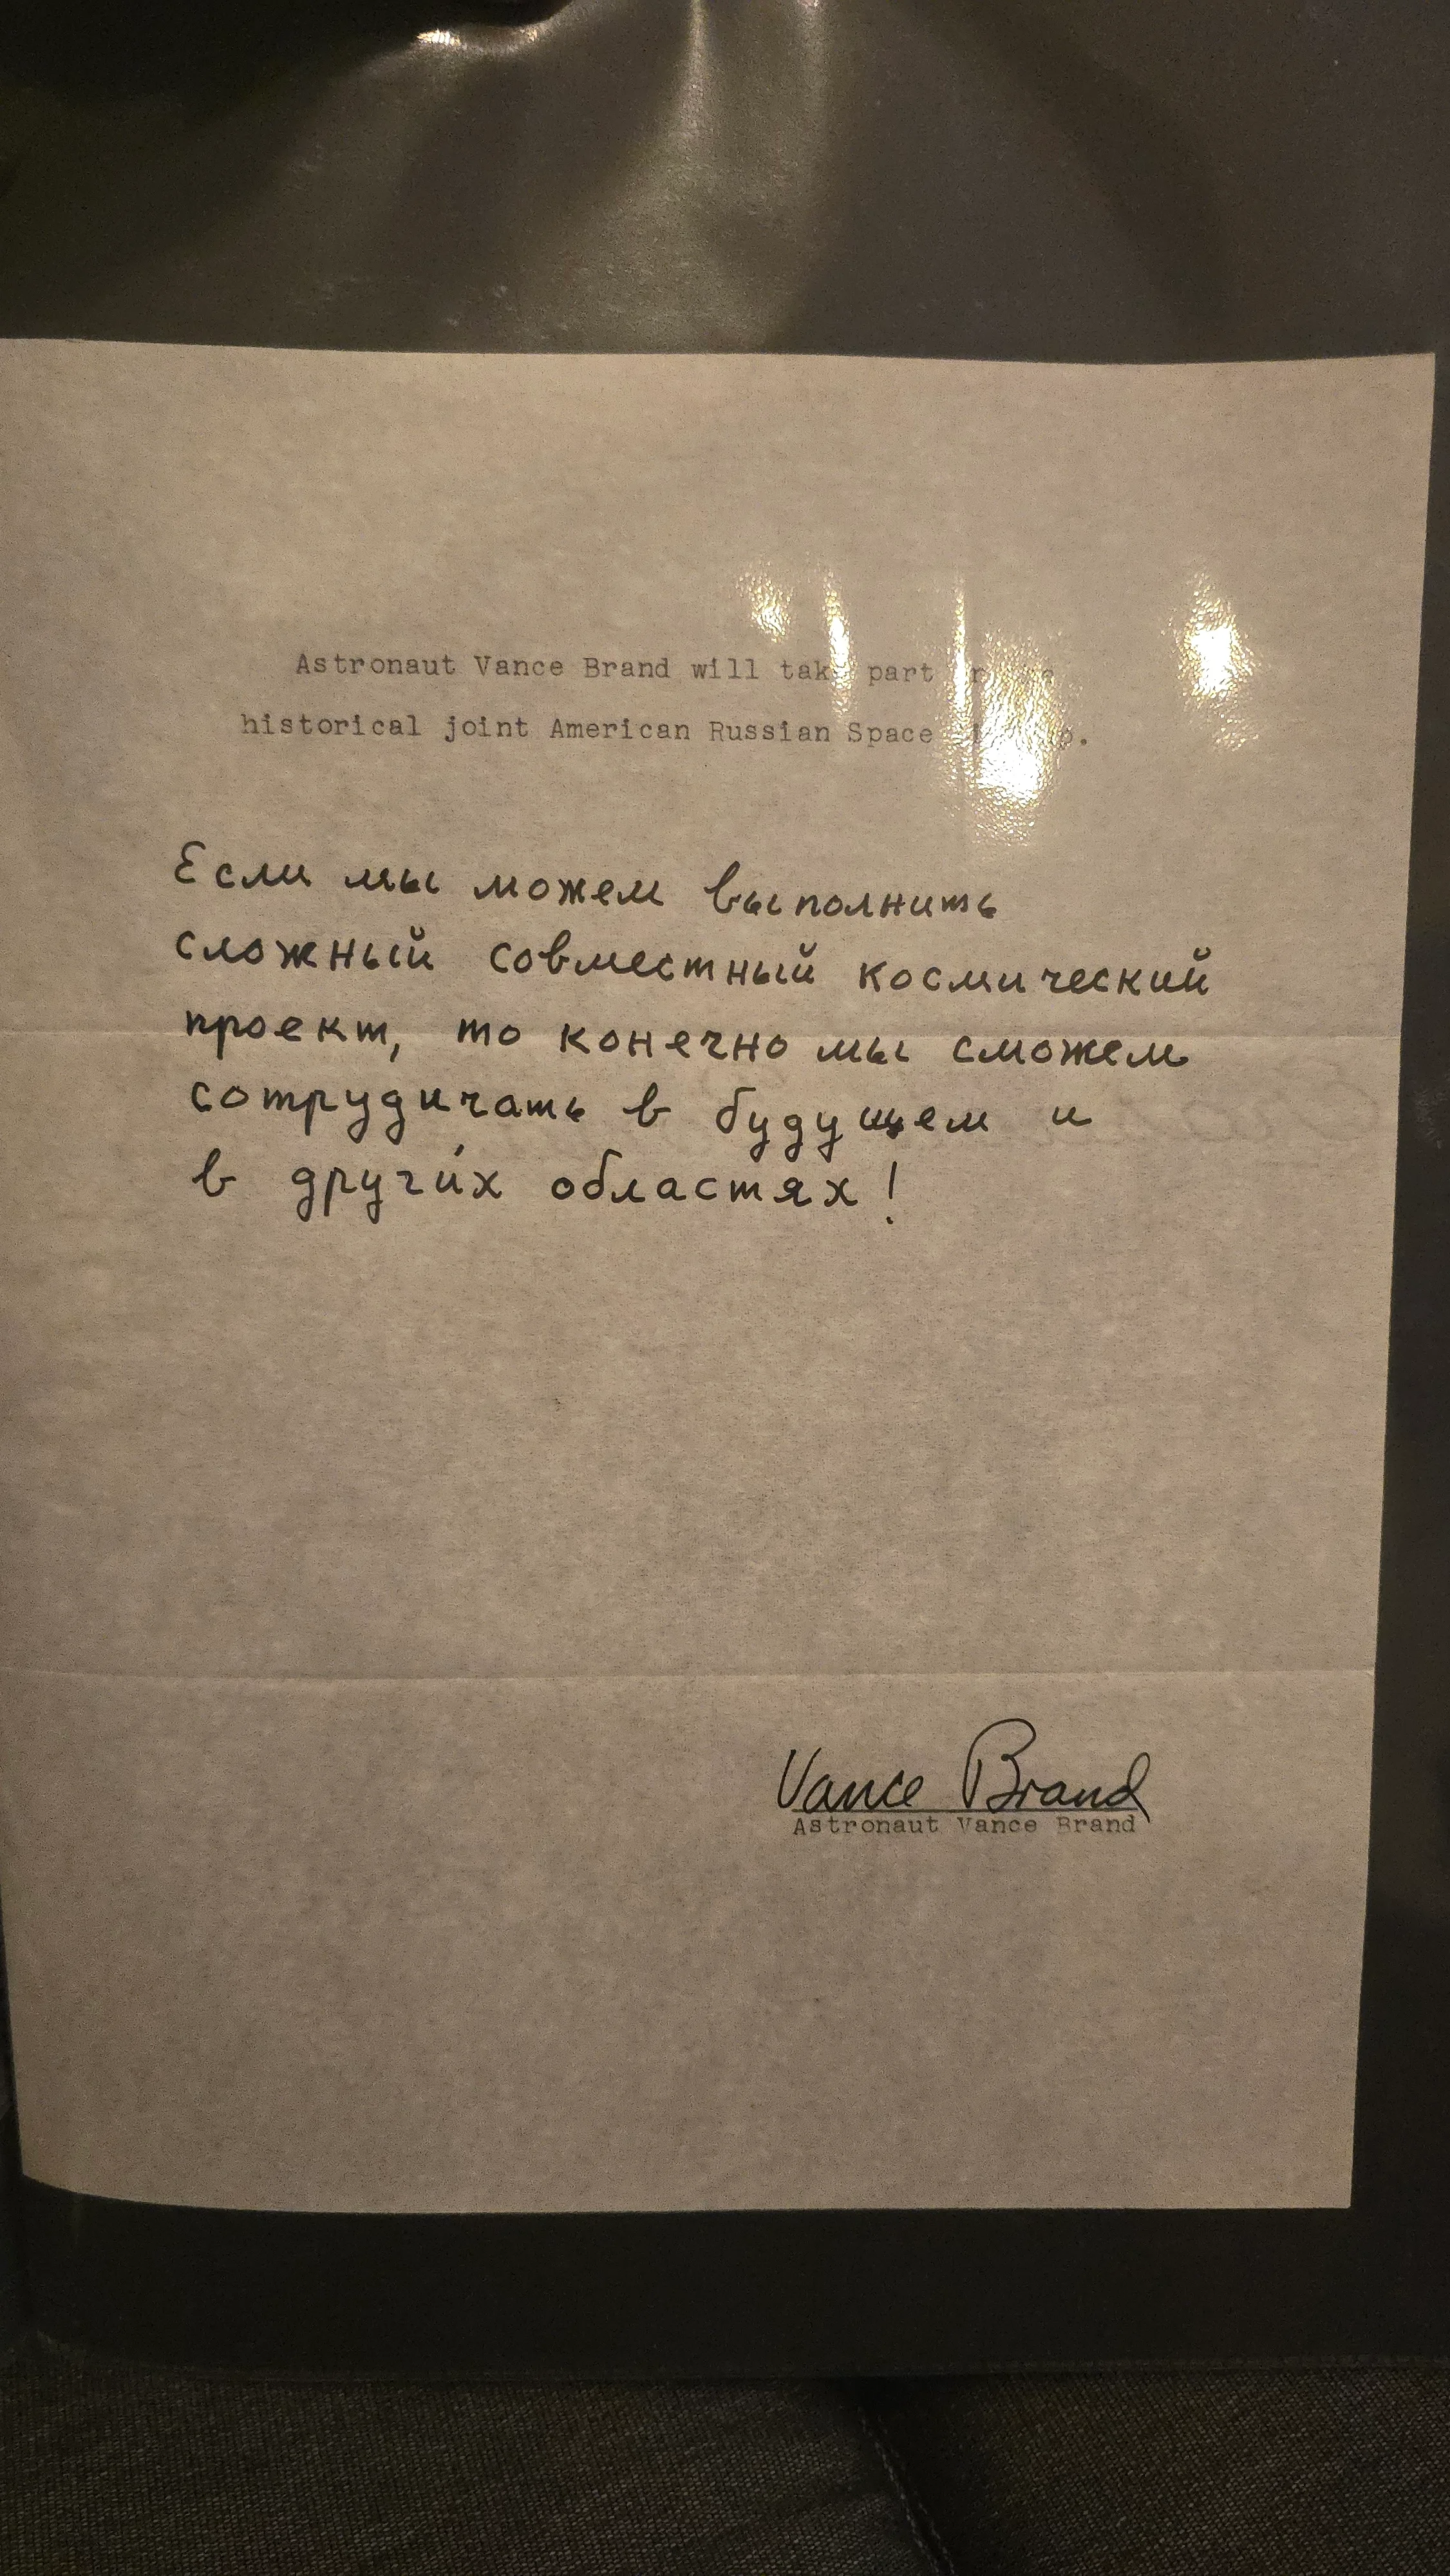 Astronaut Vance Brand will take part
historical joint American Russian Space
Если мы можем выполнить
сложный совместный космический
проект, то конечно мы сможем
сотрудичать в будущем и
в други́х областях!
Vance Brand
Astronaut Vance Brand